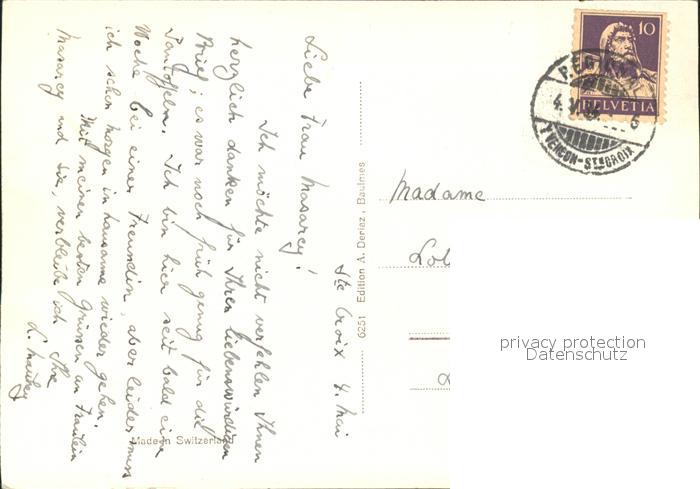 Ste Croix 4. Mai
Liebe Frau Masarey!
Ich möchte nicht verfehlen Ihnen
herzlich danken für Ihren liebenswürdigen
Brief; es war noch früh genug für die
Pantoffeln. Ich bin hier seit bald eine
Woche bei einer Freundin, aber leider muss
ich schon morgen in Lausanne wieder gehen.
Mit meinen besten Grüssen an Fräulein
Masarey und Sie, verbleibe ich Ihre
L.
Made in Switzerland
6251 Edition A. Deriaz, Baulmes
10
HELVETIA
YVERDON-STE CROIX
Madame
privacy protection
Datenschutz